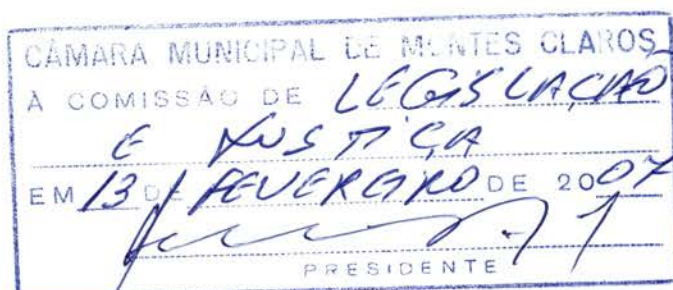 CÂMARA MUNICIPAL DE MONTES CLAROS
À COMISSÃO DE LEGISLAÇÃO
E JUSTIÇA
EM 13 DE FEVEREIRO DE 2007
PRESIDENTE